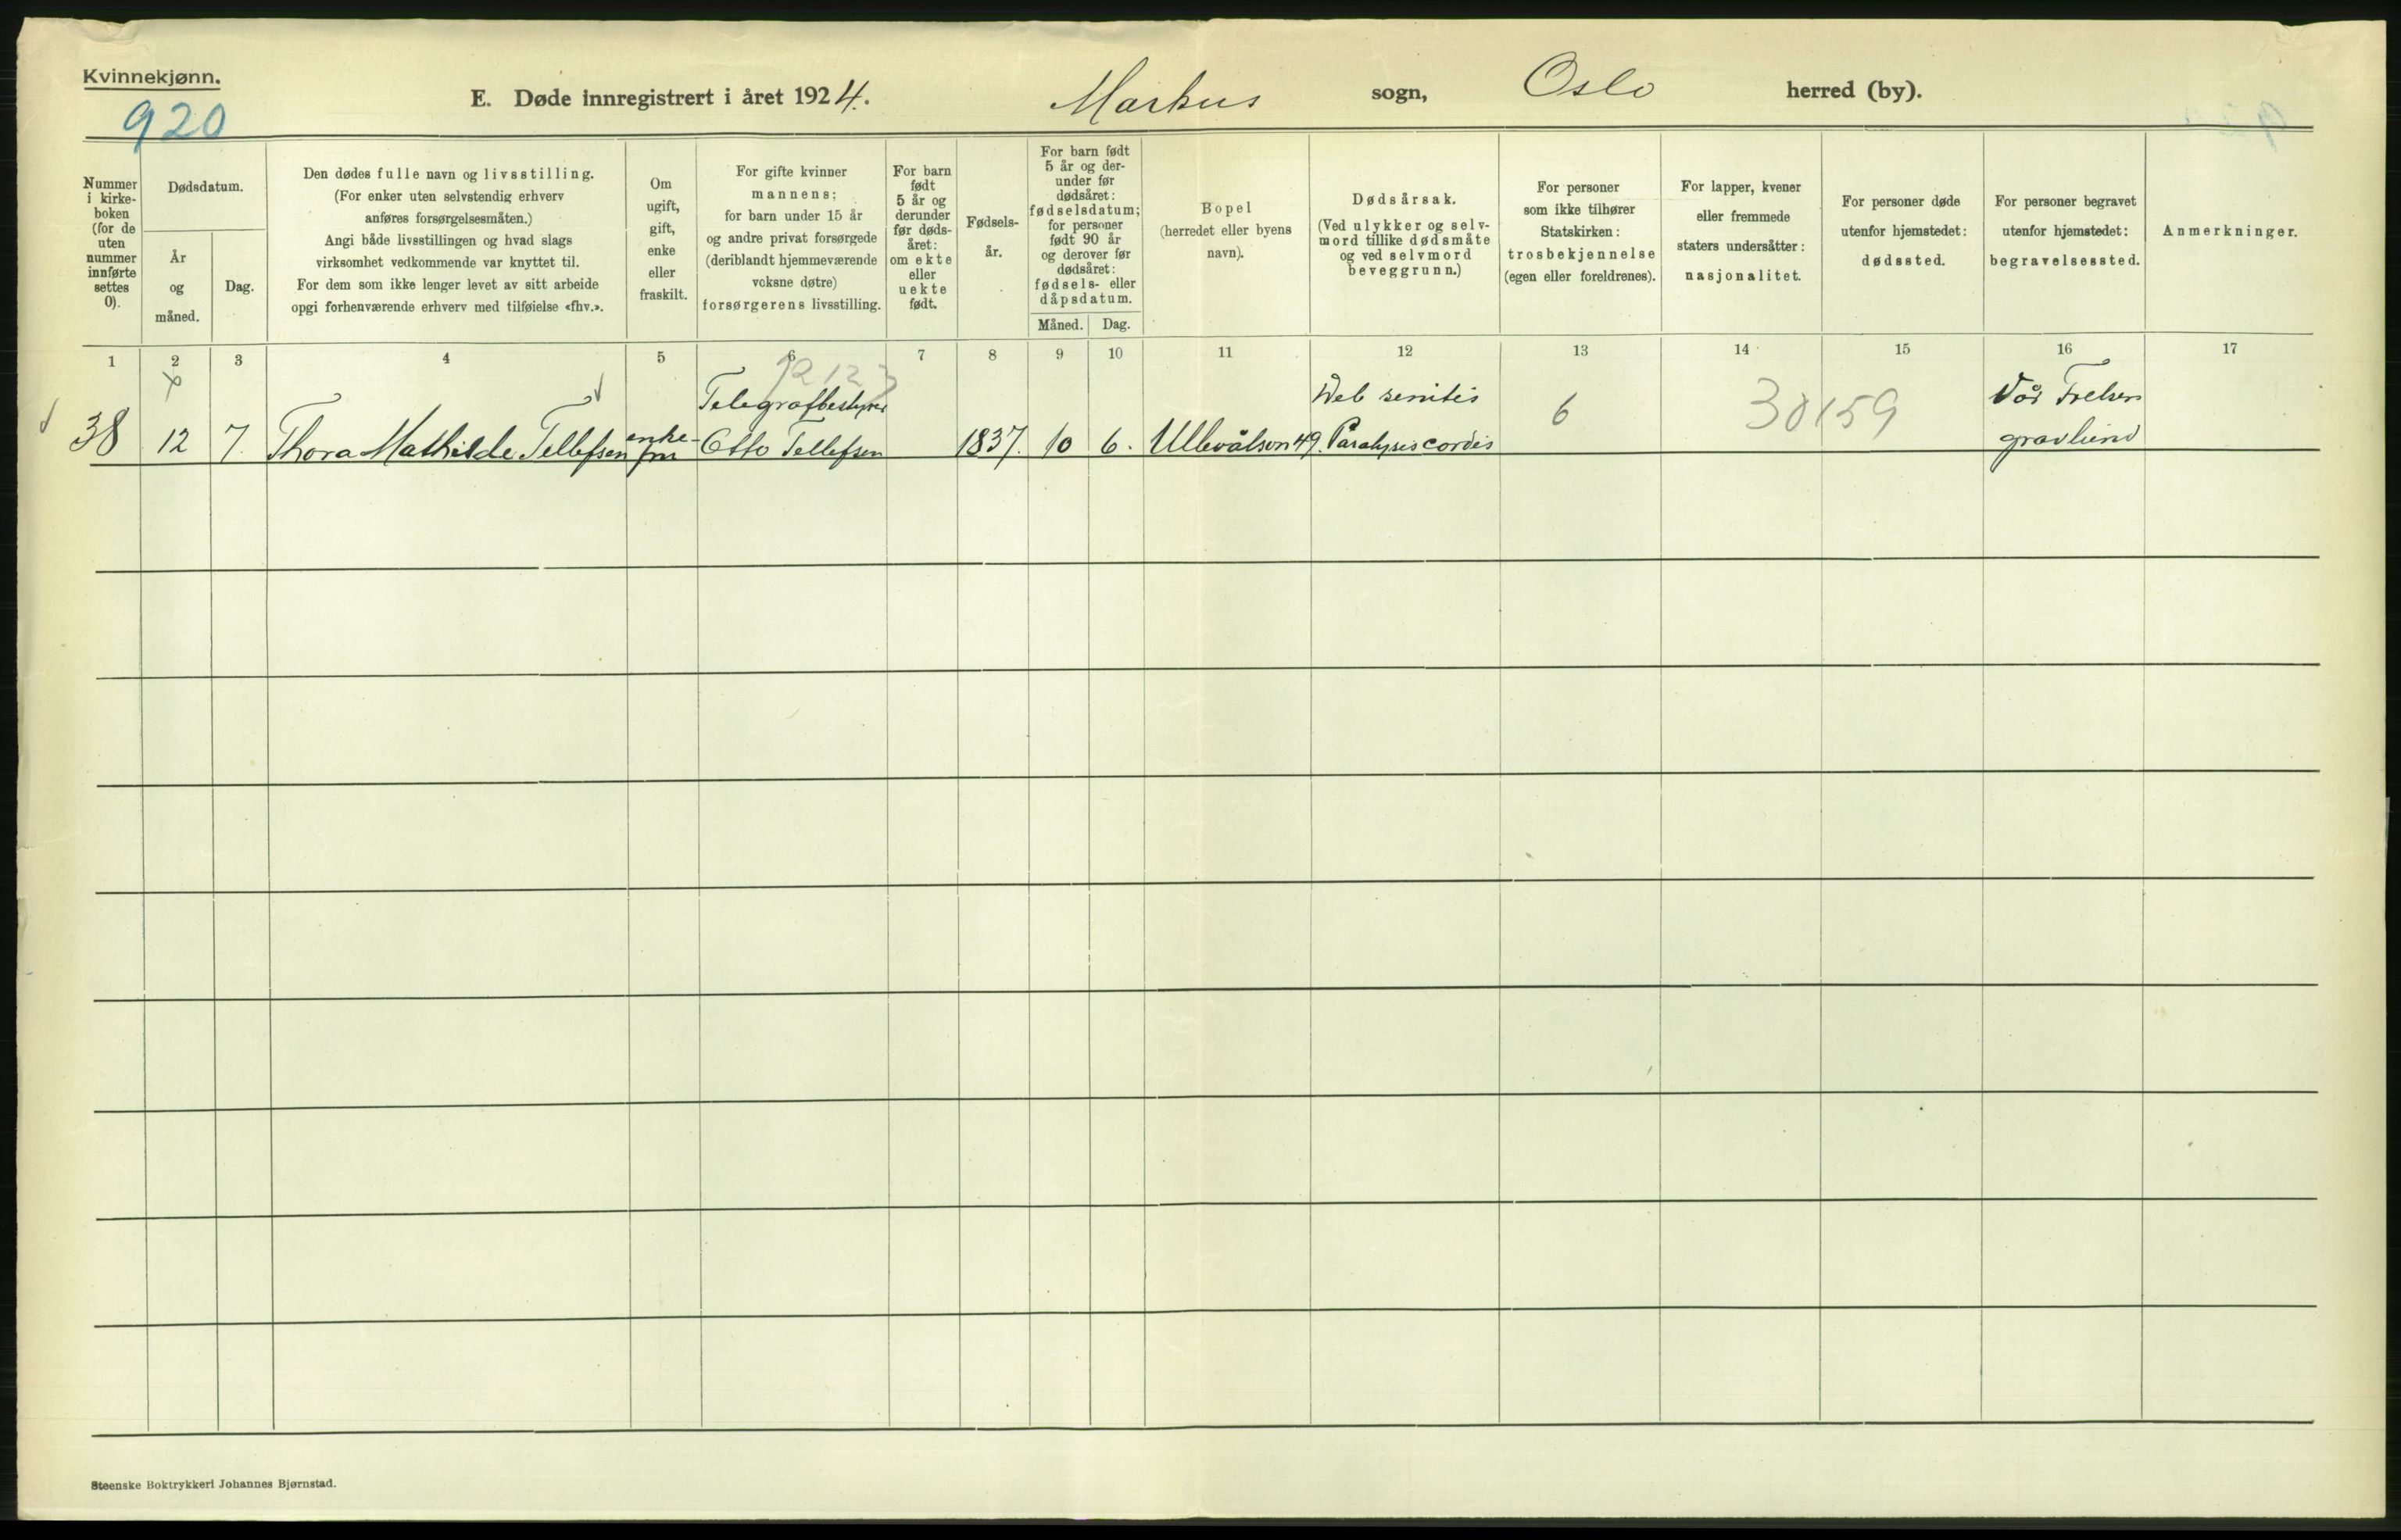 Kvinnekjønn.
920
E. Døde innregistrert i året 1924.
Markus sogn, Oslo herred (by).
Nummer i kirke- boken (for de uten nummer innførte settes 0).
Dødsdatum.
År og måned.
Dag.
Den dødes fulle navn og livsstilling.
(For enker uten selvstendig erhverv
anføres forsørgelsesmåten.)
Angi både livsstillingen og hvad slags
virksomhet vedkommende var knyttet til.
For dem som ikke lenger levet av sitt arbeide
opgi forhenværende erhverv med tilføielse «fhv.».
Om ugift, gift, enke eller fraskilt.
For gifte kvinner
mannens;
for barn under 15 år
og andre privat forsørgede
(deriblandt hjemmeværende
voksne døtre)
forsørgerens livsstilling.
For barn født 5 år og derunder før døds- året: om ekte eller uekte født.
Fødsels- år.
For barn født
5 år og der-
under før
dødsåret:
fødselsdatum;
for personer
født 90 år
og derover før
dødsåret:
fødsels- eller
dåpsdatum.
Måned. Dag.
Bopel
(herredet eller byens
navn).
Dødsårsak.
(Ved ulykker og selv-
mord tillike dødsmåte
og ved selvmord
beveggrunn.)
For personer
som ikke tilhører
Statskirken:
trosbekjennelse
(egen eller foreldrenes).
For lapper, kvener
eller fremmede
staters undersåtter:
nasjonalitet.
For personer døde
utenfor hjemstedet:
dødssted.
For personer begravet
utenfor hjemstedet:
begravelsessted.
Anmerkninger.
1 2 3 4 5 6 7 8 9 10 11 12 13 14 15 16 17
Telegrafbestyrer
38 12 7. Thora Mathilde Tellefsen enke- fru Otto Tellefsen 1837. 10 6. Ullevålsvn 49. Paralysis cordis 6 30159
Vår Frelsers
gravlund
Steenske Boktrykkeri Johannes Bjørnstad.